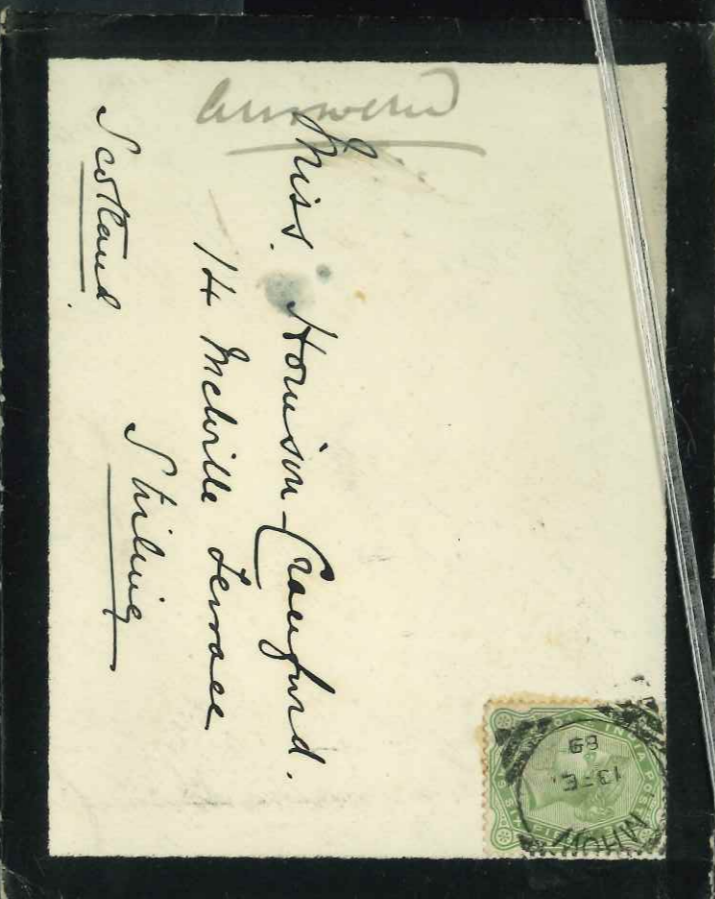 answered
Miss. Howison-Craufurd.
14 Melville Terrace
Stirling
Scotland
INDIA POS
MHOW
13 FE.
89